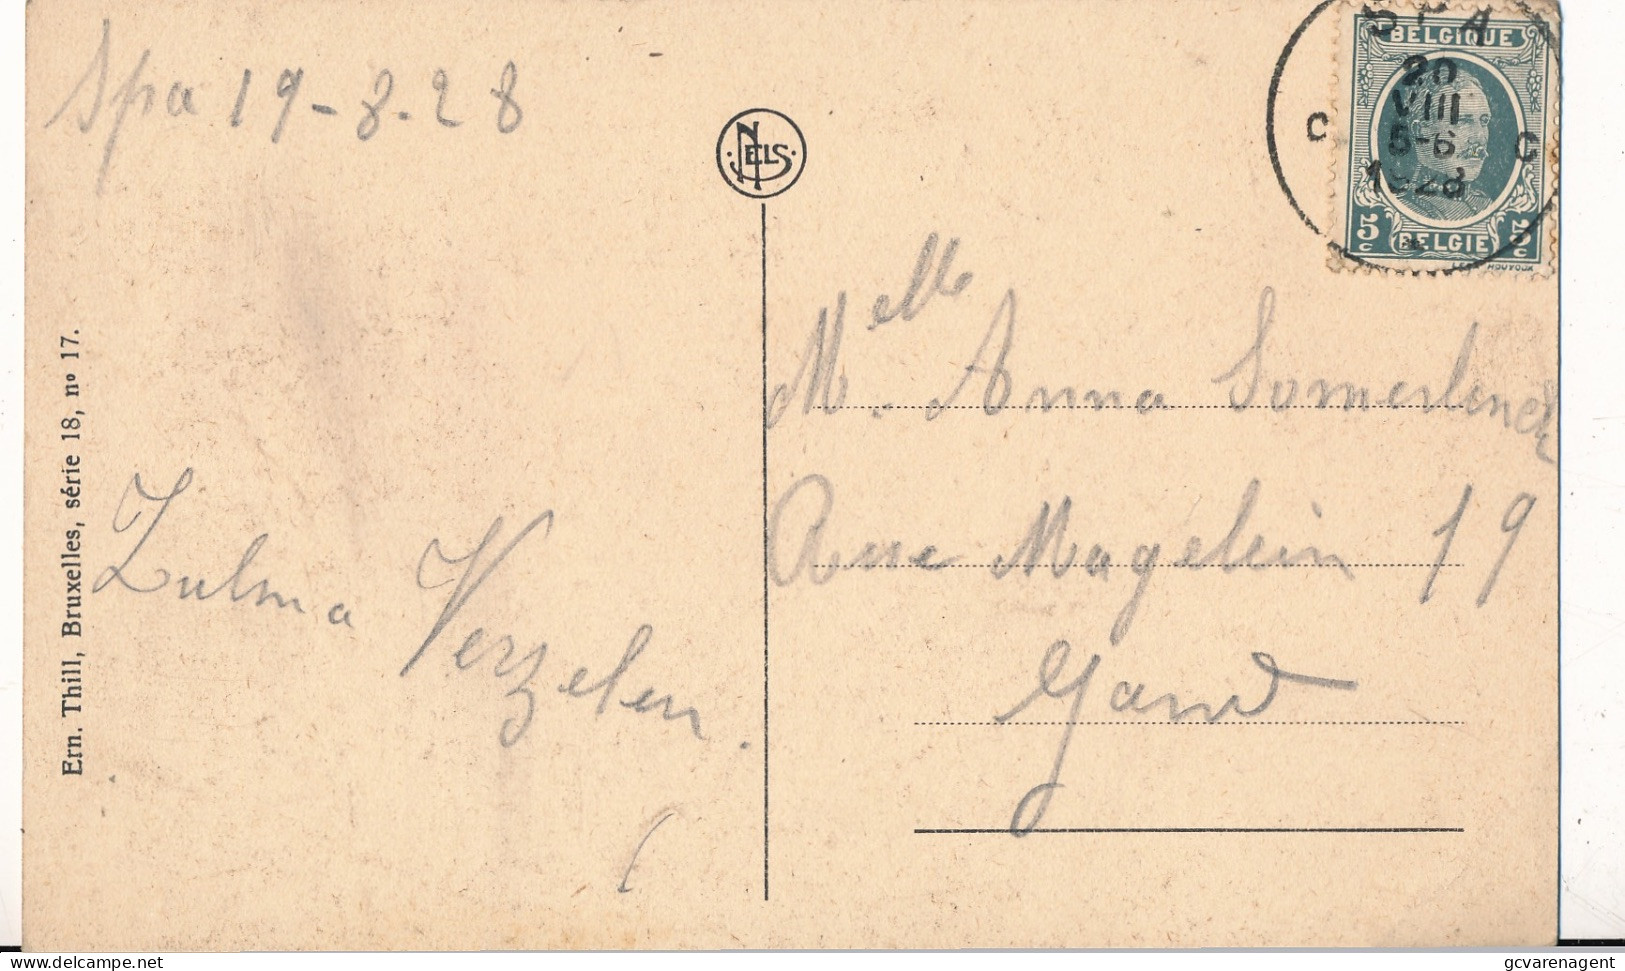 Spa 19-8-28
NELS
SPA
20
VIII
5-6
1928
C C
BELGIQUE
5c BELGIE 5c
HOUYOUX
Melle. Anna Somerlinck
Rue Magelein 19
Gand
Zulma Verzelen.
Ern. Thill, Bruxelles, série 18, nº 17.
delcampe.net
gcvarenagent